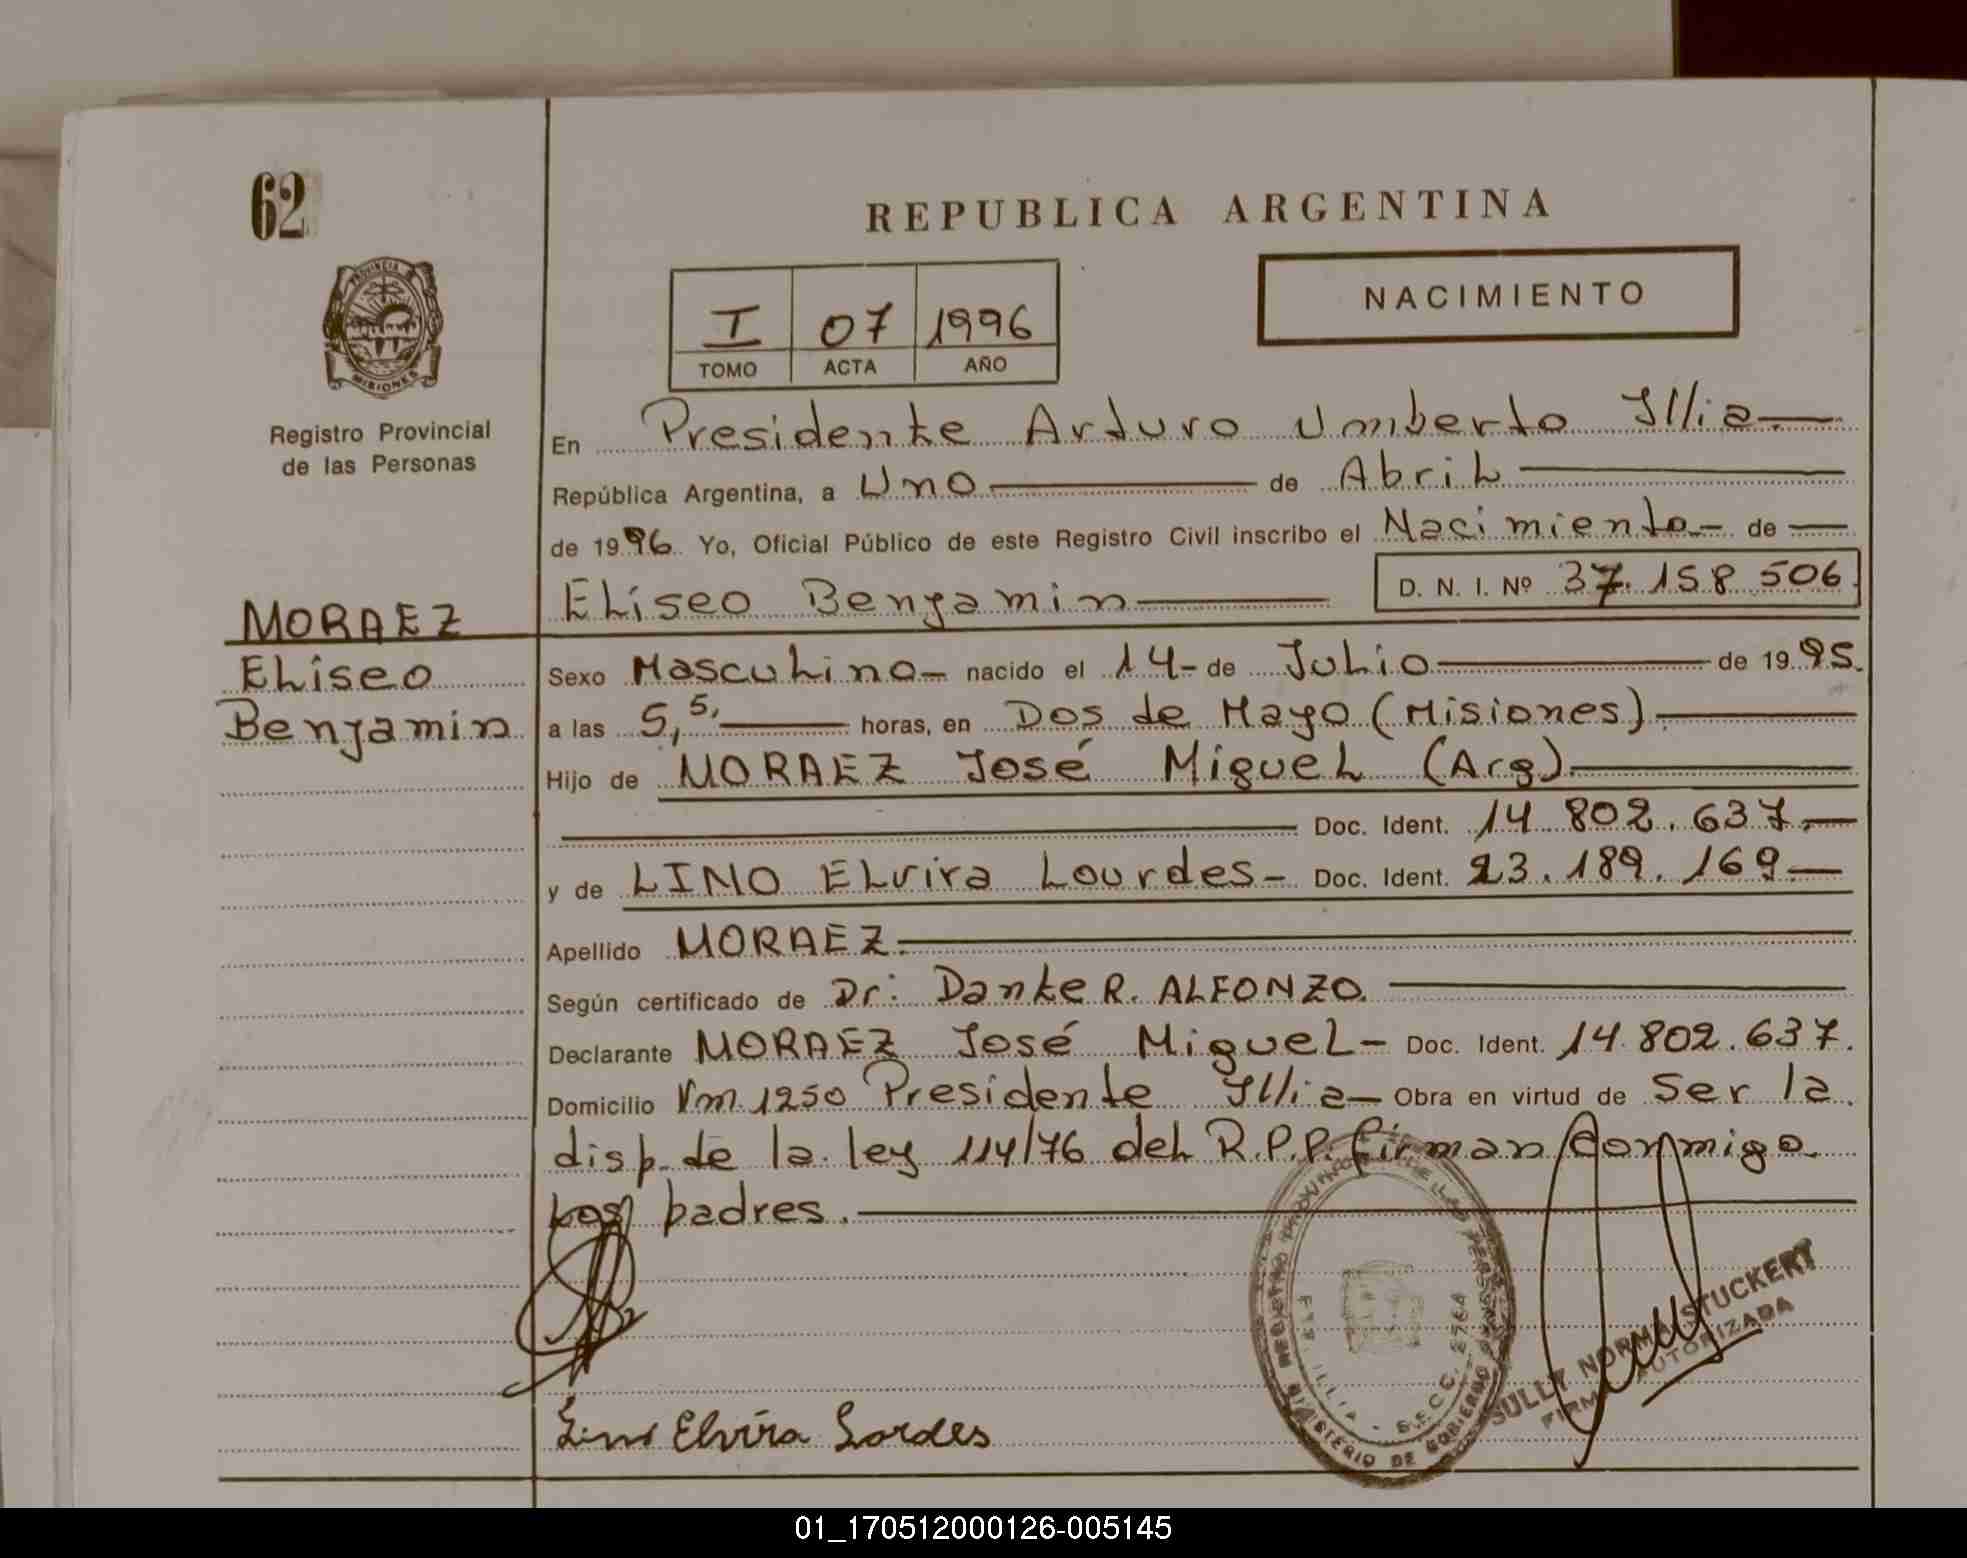 62
REPUBLICA ARGENTINA
NACIMIENTO
PROVINCIA DE
MISIONES
Registro Provincial
de las Personas
I 07 1996
TOMO ACTA AÑO
En Presidente Arturo Umberto Illia.—
República Argentina, a Uno — de Abril —
de 1996. Yo, Oficial Público de este Registro Civil inscribo el Nacimiento.— de —
Eliseo Benjamin — D. N. I. Nº 37.158.506.
MORAEZ
Eliseo
Benjamin
Sexo Masculino — nacido el 14 - de Julio — de 1995.
a las 5,5, — horas, en Dos de Mayo (Misiones). —
Hijo de MORAEZ José Miguel (Arg). —
— Doc. Ident. 14.802.637.—
y de LINO Elvira Lourdes — Doc. Ident. 23.189.169.—
Apellido MORAEZ. —
Según certificado de Dr: Dante R. ALFONZO. —
Declarante MORAEZ José Miguel — Doc. Ident. 14.802.637.
Domicilio Vm 1250 Presidente Illia — Obra en virtud de Ser la
disp. de la ley 114/76 del R.P.P. firman conmigo
los padres. —
Elvira Lordes
REGISTRO PROVINCIAL DE LAS PERSONAS
PTE. ILLIA - SECC.
MINISTERIO DE GOBIERNO
SULLY NORMA STUCKERT
FIRMA AUTORIZADA
01_170512000126-005145